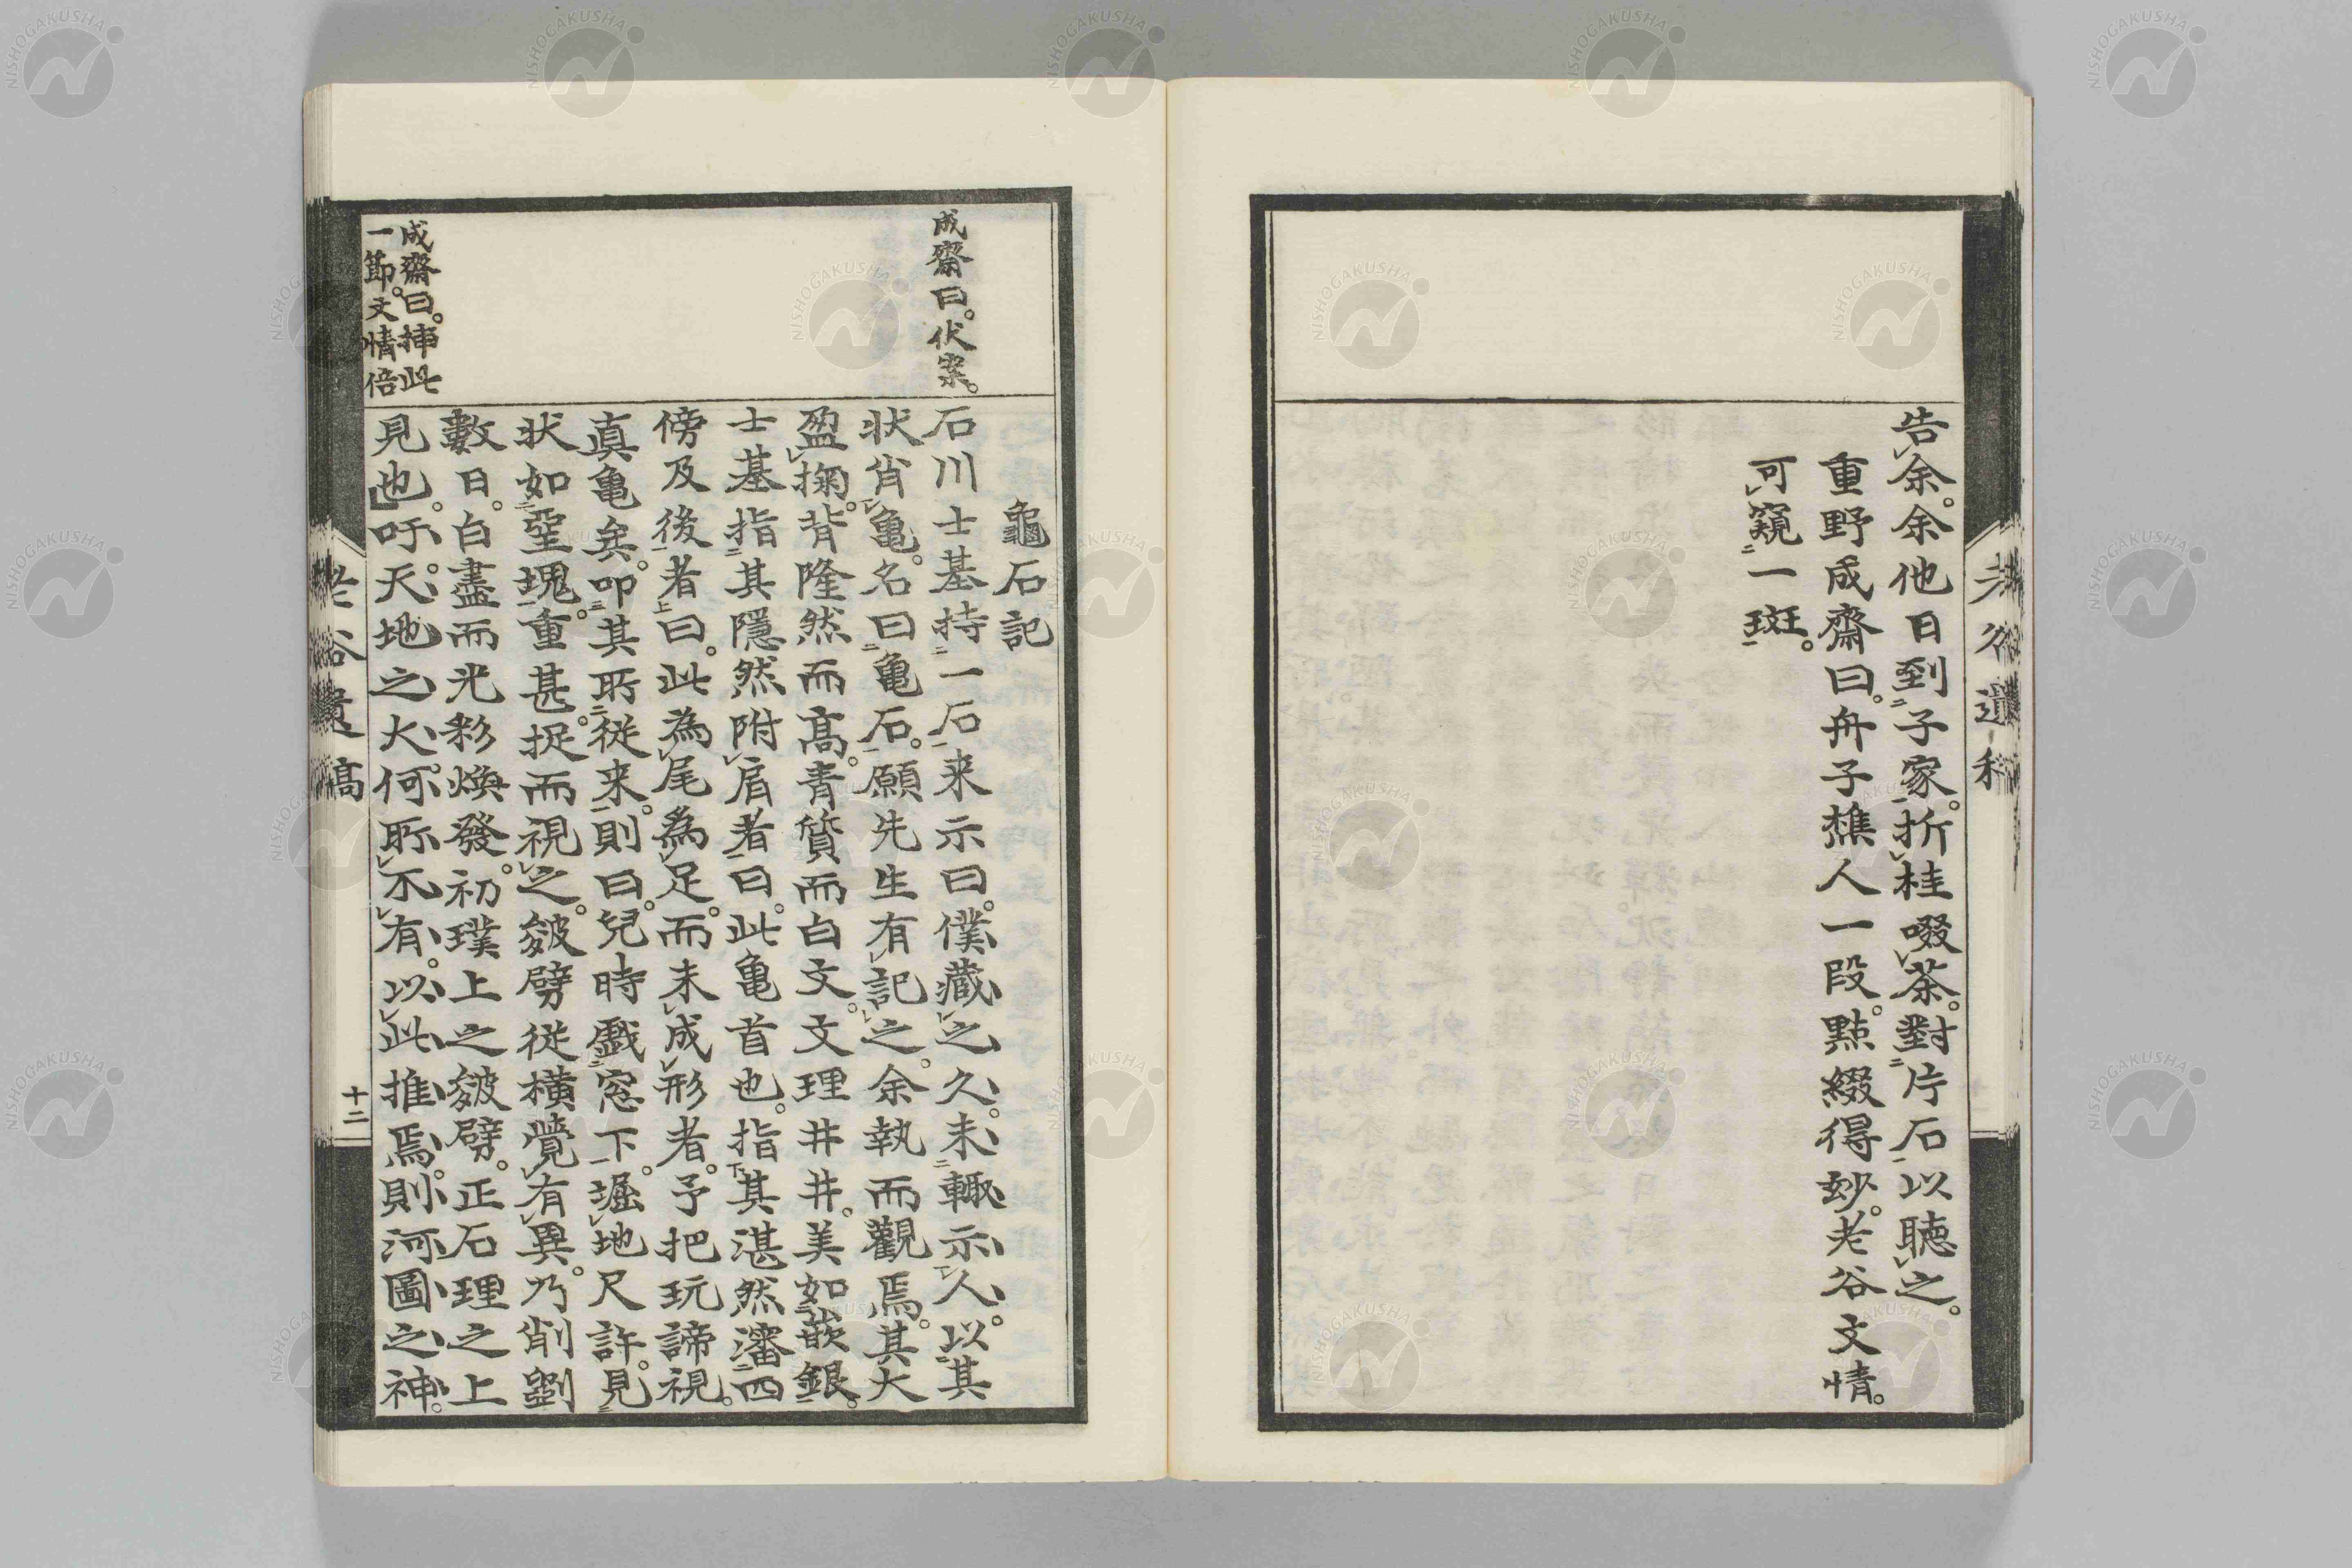 告余。余他日到子家。折桂啜茶。對片石以聴之。
重野成齋曰。舟子樵人一段。點綴得妙。老谷文情。
可窺一斑。
老谷遺稿
龜石記
成齋曰。伏案。
石川士基持一石来示曰。僕藏之久。未輙示人。以其
状肖亀。名曰亀石。願先生有記之。余執而觀焉。其大
盈掬。背隆然而高。青質而白文。文理井井。美如嵌銀。
士基指其隱然附肩者曰。此亀首也。指其湛然瀋四
傍及後者曰。此為尾為足。而未成形者。予把玩諦視。
真亀矣。叩其所従来。則曰。兒時戲窓下。堀地尺許。見
状如堊塊。重甚。捉而視之。皴劈従横。覺有異。乃削劉
數日。白盡而光彩煥發。初璞上之皴劈。正石理之上
見也。吁。天地之大。何所不有。以此推焉。則河圖之神。
成齋曰。挿此
一節。文情倍
老谷遺稿
十二
NISHOGAKUSHA